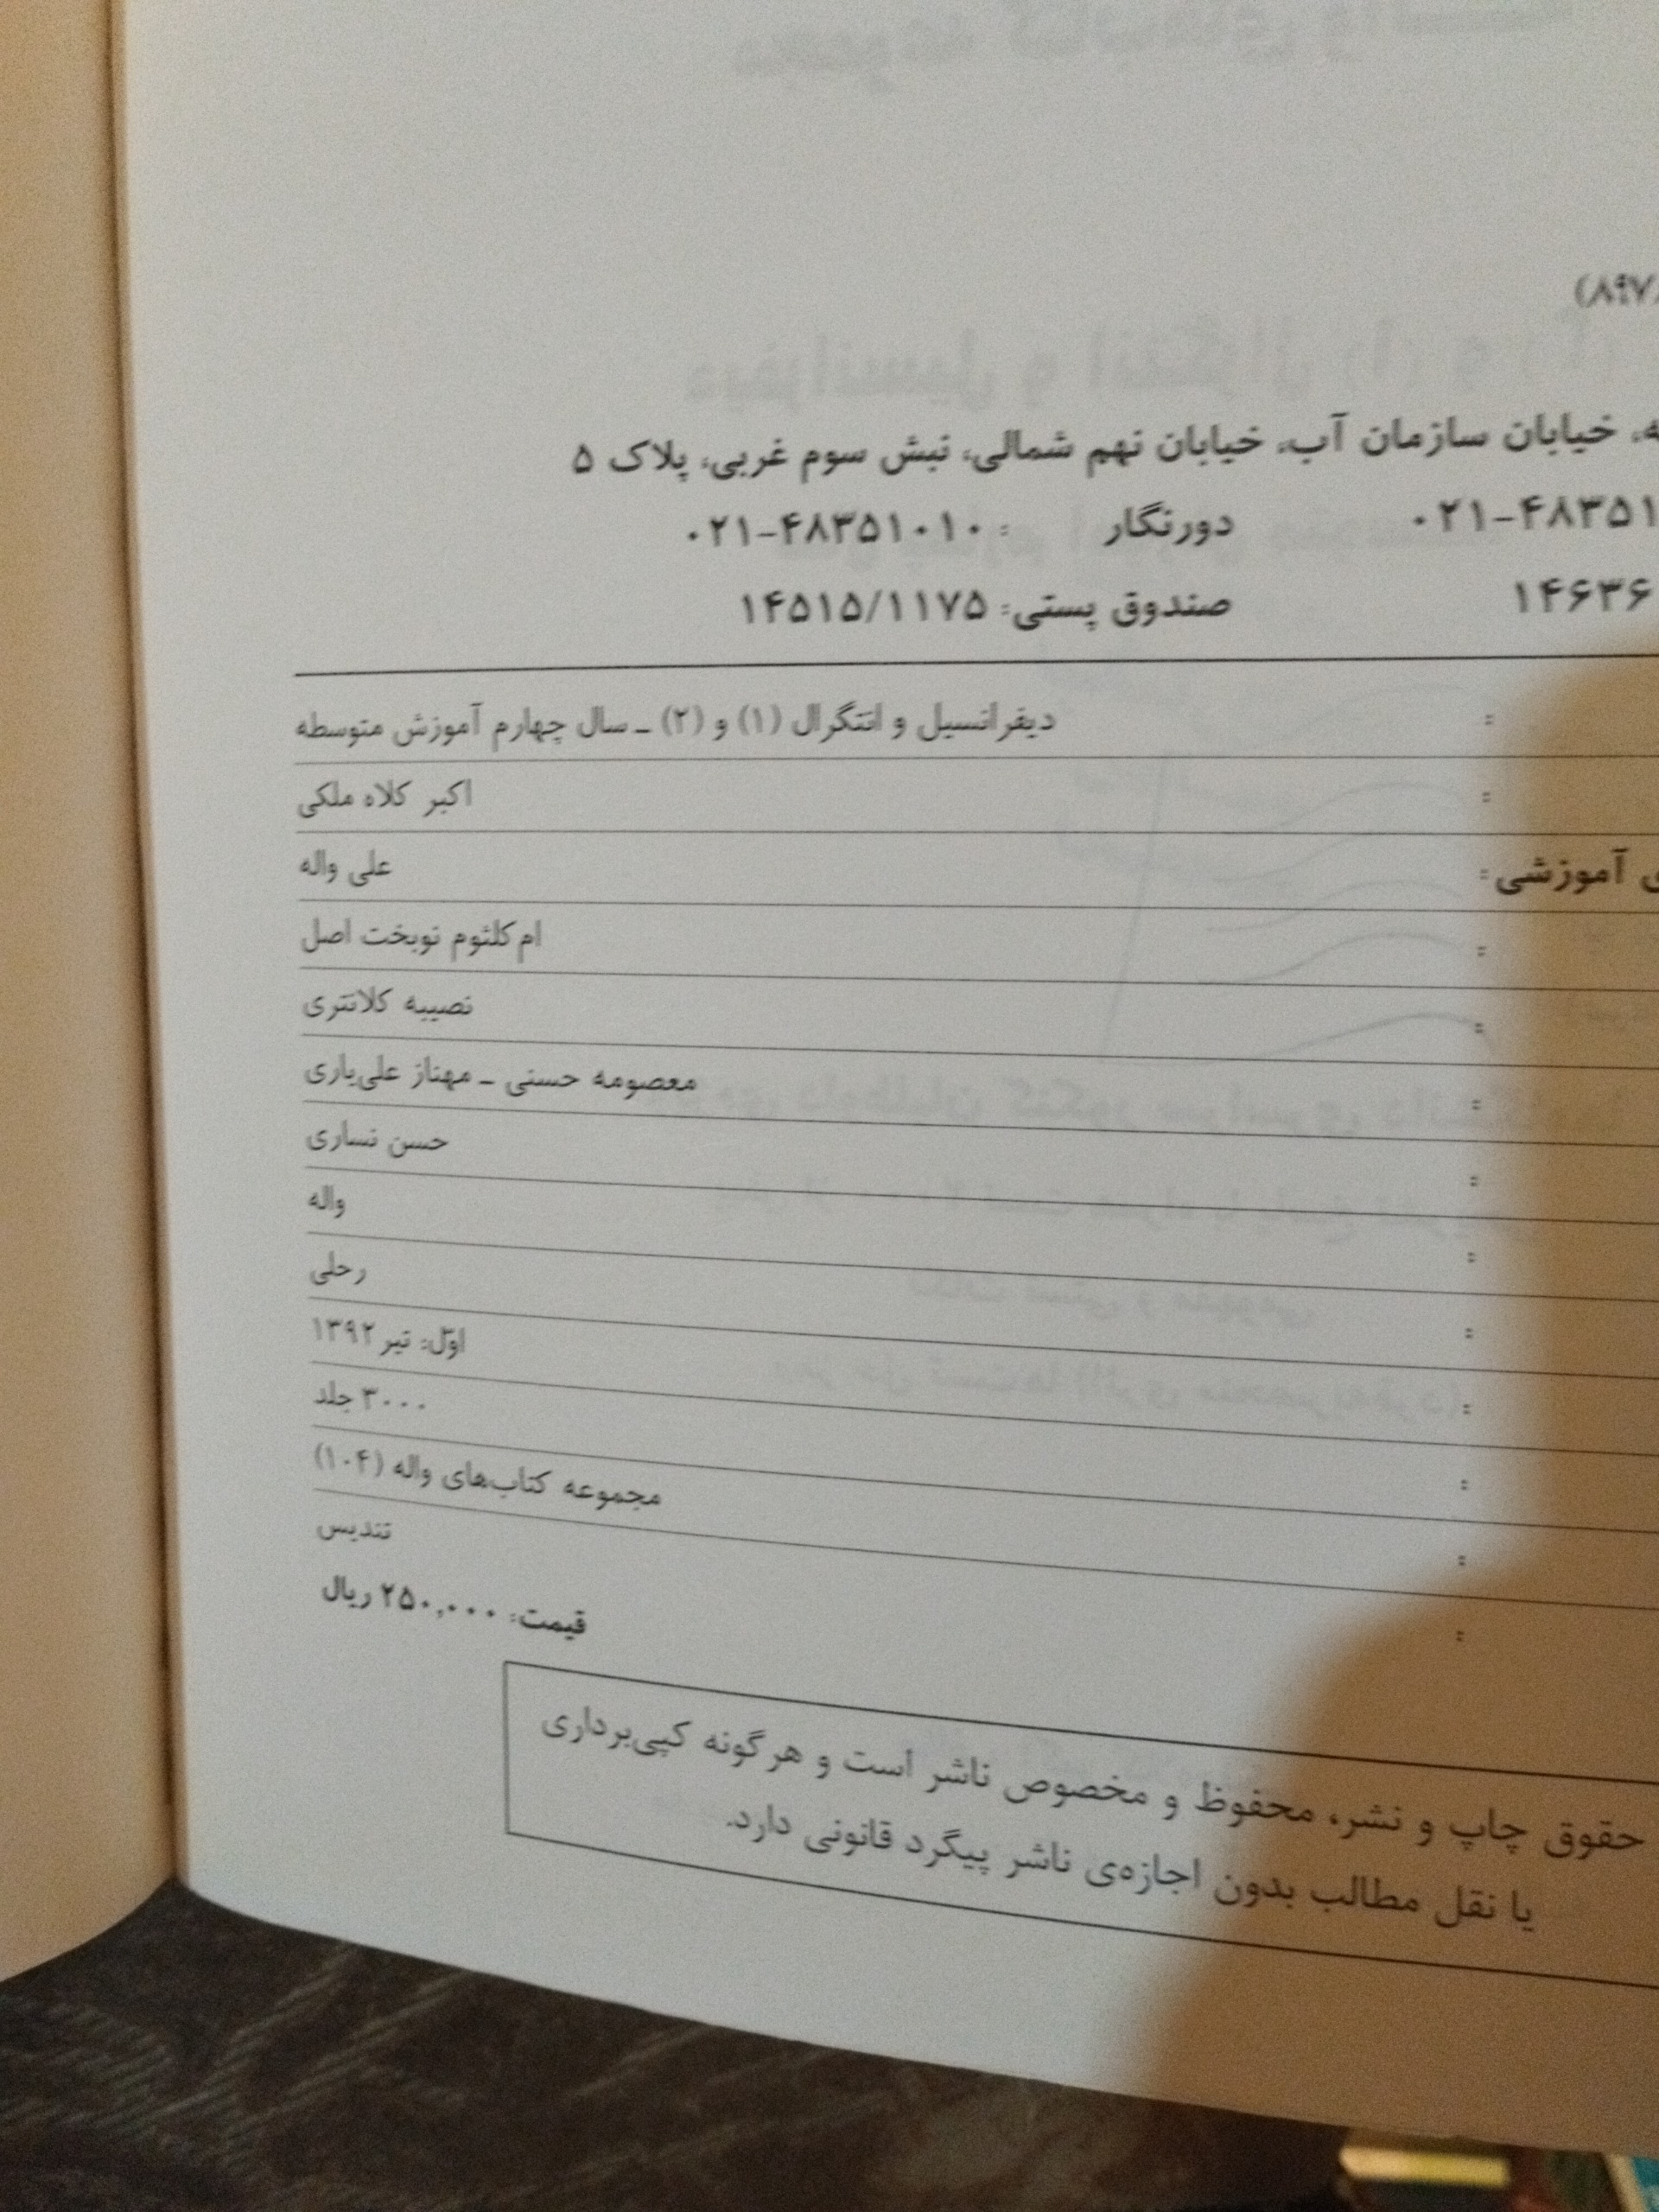 خیابان سازمان آب، خیابان نهم شمالی، نبش سوم غربی، پلاک ۵
۰۲۱-۴۸۳۵۱ دورنگار : ۰۲۱-۴۸۳۵۱۰۱۰
۱۴۶۳۶ صندوق پستی: ۱۴۵۱۵/۱۱۷۵
: دیفرانسیل و انتگرال (۱) و (۲) ـ سال چهارم آموزش متوسطه
: اکبر کلاه ملکی
ی آموزشی: علی واله
: ام کلثوم نوبخت اصل
: نصیبه کلانتری
: معصومه حسنی ـ مهناز علی‌یاری
: حسن نساری
: واله
: رحلی
: اوّل: تیر ۱۳۹۲
: ۳۰۰۰ جلد
: مجموعه کتاب‌های واله (۱۰۴)
: تندیس
قیمت: ۲۵۰,۰۰۰ ریال
حقوق چاپ و نشر، محفوظ و مخصوص ناشر است و هرگونه کپی‌برداری
یا نقل مطالب بدون اجازه‌ی ناشر پیگرد قانونی دارد.